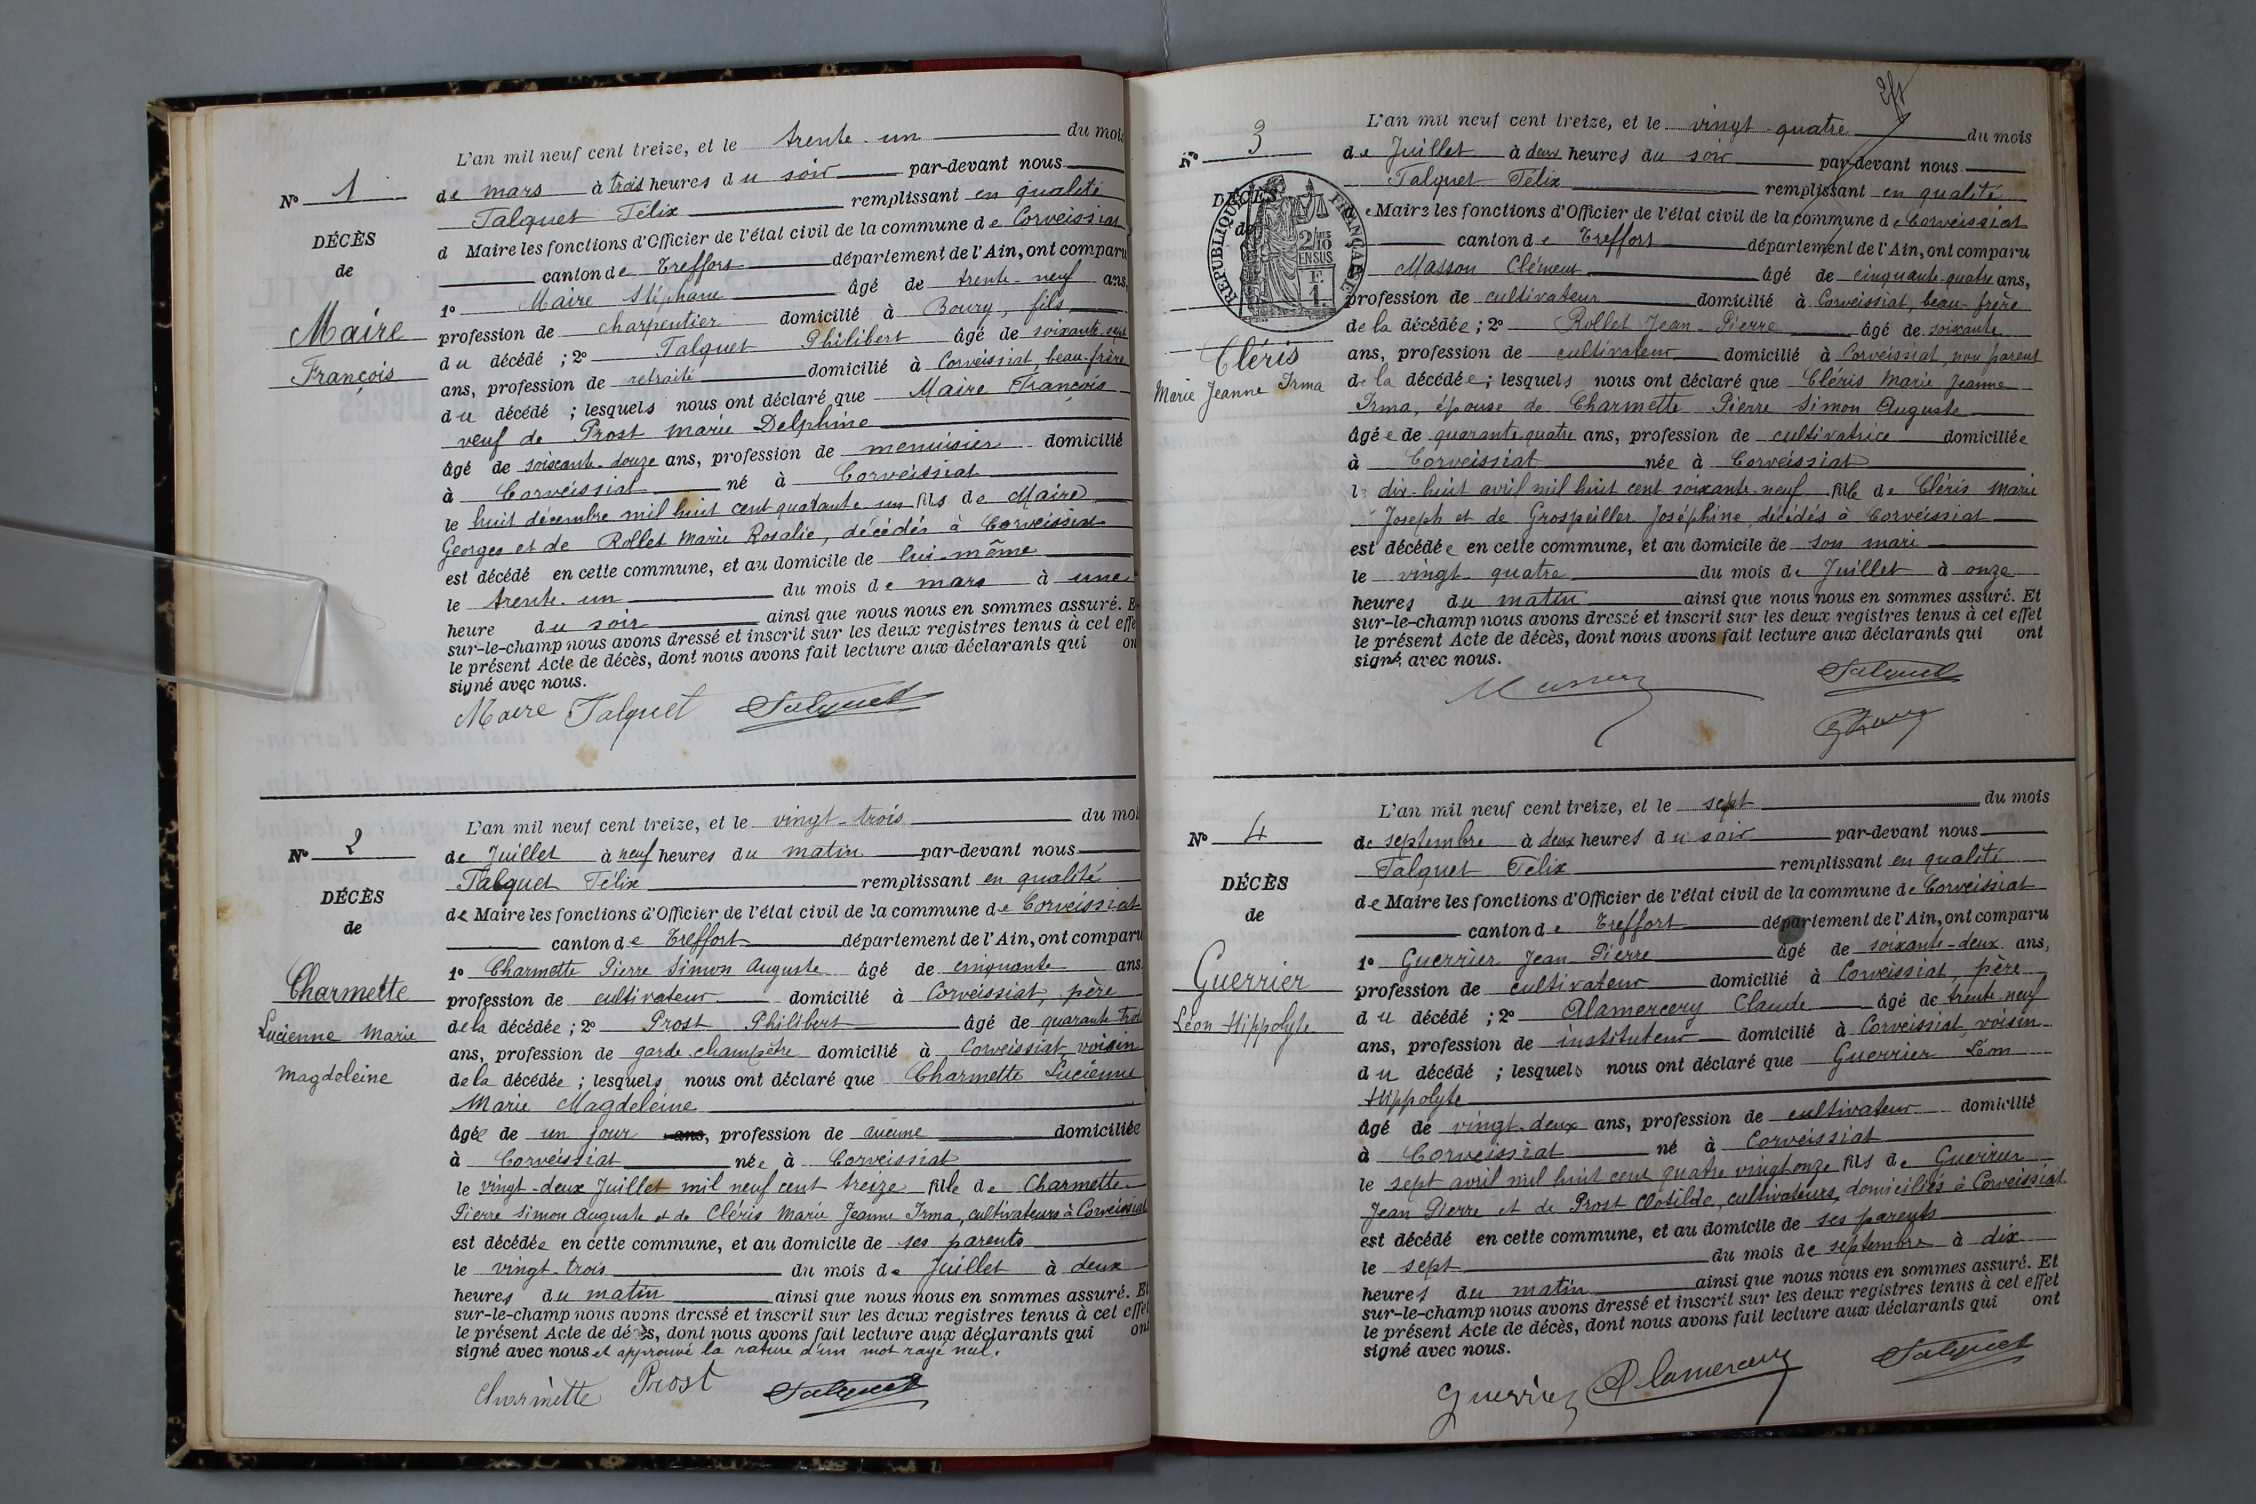 L'an mil neuf cent treize, et le trente-un du mois
No 1 de mars à trois heures du soir par-devant nous
Talquet Félix remplissant en qualité
DÉCÈS
d Maire les fonctions d'Officier de l'état civil de la commune de Corveissiat
de
canton de Treffort département de l'Ain, ont comparu
1o Maire Stéphane âgé de trente-neuf ans,
Maire profession de charpentier domicilié à Bourg, fils
du décédé ; 2o Talquet Philibert âgé de soixante-sept
François ans, profession de retraité domicilié à Corveissiat, beau-frère
du décédé ; lesquels nous ont déclaré que Maire François
veuf de Prost Marie Delphine
âgé de soixante-douze ans, profession de menuisier domicilié
à Corveissiat né à Corveissiat
le huit décembre mil huit cent quarante un fils de Maire
Georges et de Rollet Marie Rosalie, décédés à Corveissiat
est décédé en cette commune, et au domicile de lui-même
le trente-un du mois de mars à une
heure du soir ainsi que nous nous en sommes assuré. Et
sur-le-champ nous avons dressé et inscrit sur les deux registres tenus à cet effet
le présent Acte de décès, dont nous avons fait lecture aux déclarants qui ont
signé avec nous.
Maire Talquet Talquet
L'an mil neuf cent treize, et le vingt-trois du mois
No 2 de Juillet à neuf heures du matin par-devant nous
Talquet Félix remplissant en qualité
DÉCÈS
de Maire les fonctions d'Officier de l'état civil de la commune de Corveissiat
de
canton de Treffort département de l'Ain, ont comparu
1o Charmette Pierre Simon Auguste âgé de cinquante ans
Charmette profession de cultivateur domicilié à Corveissiat, père
de la décédée ; 2o Prost Philibert âgé de quarante-trois
Lucienne Marie ans, profession de garde-champêtre domicilié à Corveissiat, voisin
Magdeleine de la décédée ; lesquels nous ont déclaré que Charmette Lucienne
Marie Magdeleine
âgée de un jour ans, profession de aucune domiciliée
à Corveissiat née à Corveissiat
le vingt-deux Juillet mil neuf cent treize fille de Charmette
Pierre Simon Auguste et de Cléris Marie Jeanne Irma, cultivateurs à Corveissiat
est décédée en cette commune, et au domicile de ses parents
le vingt-trois du mois de Juillet à deux
heures du matin ainsi que nous nous en sommes assuré. Et
sur-le-champ nous avons dressé et inscrit sur les deux registres tenus à cet effet
le présent Acte de décès, dont nous avons fait lecture aux déclarants qui ont
signé avec nous et approuvé la rature d'un mot rayé nul.
Charmette Prost Talquet
L'an mil neuf cent treize, et le vingt-quatre du mois
No 3 de Juillet à deux heures du soir par-devant nous
Talquet Félix remplissant en qualité
DÉCÈS
de
RÉPUBLIQUE FRANÇAISE
2/10 EN SUS
F. 1.
e Maire les fonctions d'Officier de l'état civil de la commune de Corveissiat
canton de Treffort département de l'Ain, ont comparu
Masson Clément âgé de cinquante-quatre ans,
profession de cultivateur domicilié à Corveissiat, beau-frère
de la décédée ; 2o Rollet Jean-Pierre âgé de soixante
Cléris ans, profession de cultivateur domicilié à Corveissiat, non parent
Marie Jeanne Irma de la décédée ; lesquels nous ont déclaré que Cléris Marie Jeanne
Irma, épouse de Charmette Pierre Simon Auguste
âgée de quarante-quatre ans, profession de cultivatrice domiciliée
à Corveissiat née à Corveissiat
le dix-huit avril mil huit cent soixante-neuf fille de Cléris Marie
Joseph et de Grospeiller Joséphine, décédés à Corveissiat
est décédée en cette commune, et au domicile de son mari
le vingt-quatre du mois de Juillet à onze
heures du matin ainsi que nous nous en sommes assuré. Et
sur-le-champ nous avons dressé et inscrit sur les deux registres tenus à cet effet
le présent Acte de décès, dont nous avons fait lecture aux déclarants qui ont
signé avec nous.
Masson Talquet
L'an mil neuf cent treize, et le sept du mois
No 4 de septembre à deux heures du soir par-devant nous
Talquet Félix remplissant en qualité
DÉCÈS
de Maire les fonctions d'Officier de l'état civil de la commune de Corveissiat
de
canton de Treffort département de l'Ain, ont comparu
1o Guerrier Jean-Pierre âgé de soixante-deux ans,
Guerrier profession de cultivateur domicilié à Corveissiat, père
du décédé ; 2o Alamercery Claude âgé de trente-neuf
Léon Hippolyte ans, profession de instituteur domicilié à Corveissiat, voisin
du décédé ; lesquels nous ont déclaré que Guerrier Léon
Hippolyte
âgé de vingt-deux ans, profession de cultivateur domicilié
à Corveissiat né à Corveissiat
le sept avril mil huit cent quatre vingt onze fils de Guerrier
Jean Pierre et de Prost Clotilde, cultivateurs, domiciliés à Corveissiat
est décédé en cette commune, et au domicile de ses parents
le sept du mois de septembre à dix
heures du matin ainsi que nous nous en sommes assuré. Et
sur-le-champ nous avons dressé et inscrit sur les deux registres tenus à cet effet
le présent Acte de décès, dont nous avons fait lecture aux déclarants qui ont
signé avec nous.
Guerrier Alamercery Talquet